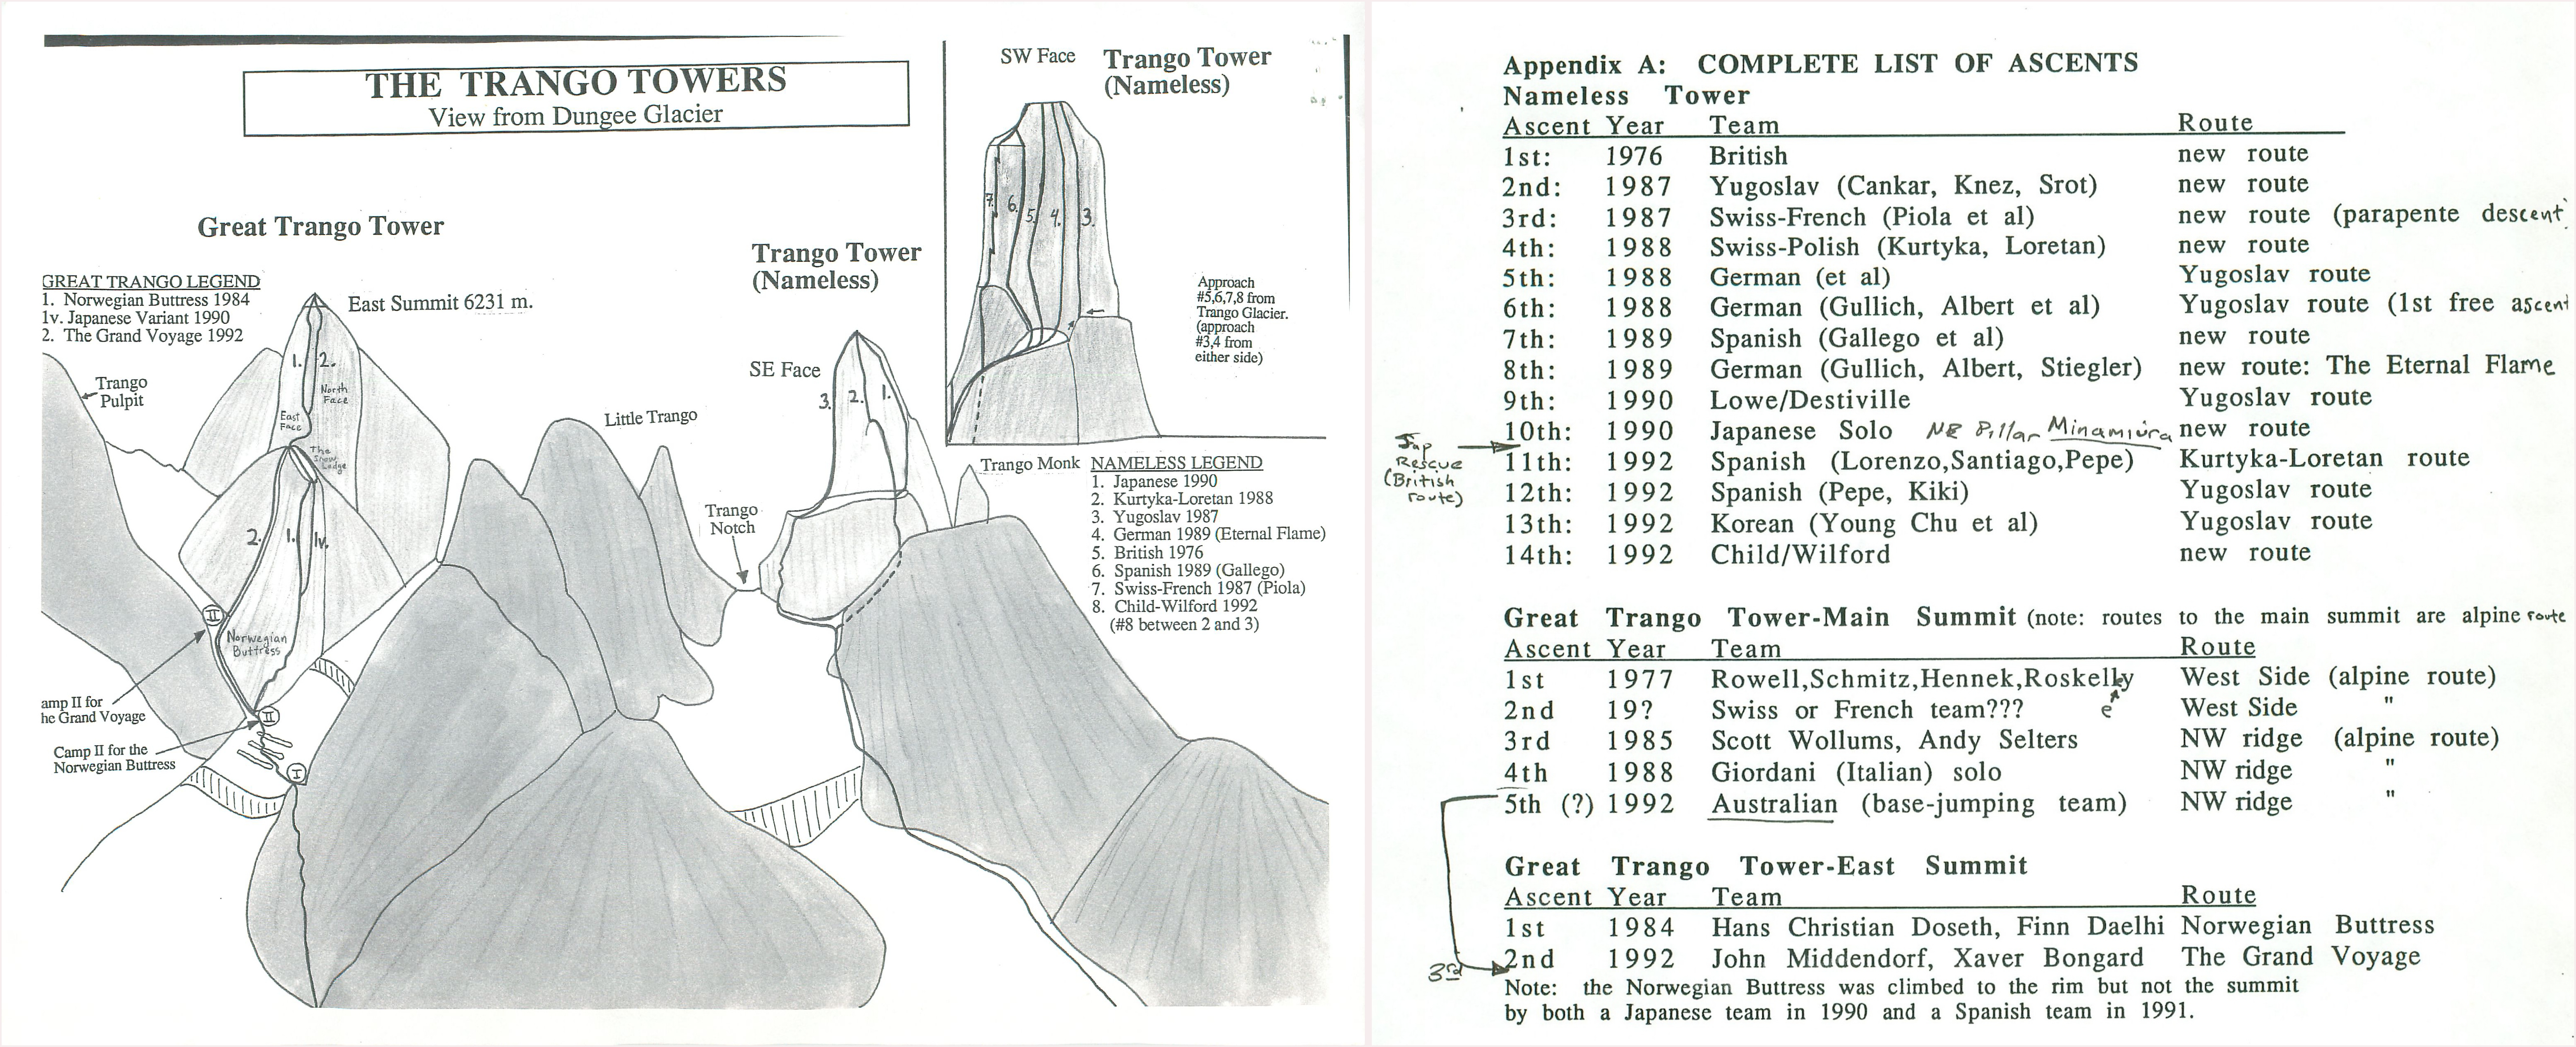 THE TRANGO TOWERS
View from Dungee Glacier
Great Trango Tower
GREAT TRANGO LEGEND
1. Norwegian Buttress 1984
1v. Japanese Variant 1990
2. The Grand Voyage 1992
East Summit 6231 m.
Trango
Pulpit
1.
2.
North
Face
East
Face
The
Snow
Ledge
2.
1.
1v.
II
Norwegian
Buttress
amp II for
he Grand Voyage
II
Camp II for the
Norwegian Buttress
I
Little Trango
Trango
Notch
Trango Tower
(Nameless)
SE Face
3.
2.
1.
SW Face
Trango Tower
(Nameless)
7.
6.
5.
4.
3.
Approach
#5,6,7,8 from
Trango Glacier.
(approach
#3,4 from
either side)
Trango Monk
NAMELESS LEGEND
1. Japanese 1990
2. Kurtyka-Loretan 1988
3. Yugoslav 1987
4. German 1989 (Eternal Flame)
5. British 1976
6. Spanish 1989 (Gallego)
7. Swiss-French 1987 (Piola)
8. Child-Wilford 1992
(#8 between 2 and 3)
Appendix A: COMPLETE LIST OF ASCENTS
Nameless Tower
Ascent Year Team Route
1st: 1976 British new route
2nd: 1987 Yugoslav (Cankar, Knez, Srot) new route
3rd: 1987 Swiss-French (Piola et al) new route (parapente descent
4th: 1988 Swiss-Polish (Kurtyka, Loretan) new route
5th: 1988 German (et al) Yugoslav route
6th: 1988 German (Gullich, Albert et al) Yugoslav route (1st free ascent
7th: 1989 Spanish (Gallego et al) new route
8th: 1989 German (Gullich, Albert, Stiegler) new route: The Eternal Flame
9th: 1990 Lowe/Destiville Yugoslav route
10th: 1990 Japanese Solo NE Pillar Minamiura new route
Jap
Rescue
(British
route)
11th: 1992 Spanish (Lorenzo,Santiago,Pepe) Kurtyka-Loretan route
12th: 1992 Spanish (Pepe, Kiki) Yugoslav route
13th: 1992 Korean (Young Chu et al) Yugoslav route
14th: 1992 Child/Wilford new route
Great Trango Tower-Main Summit (note: routes to the main summit are alpine route
Ascent Year Team Route
1st 1977 Rowell,Schmitz,Hennek,Roskelly West Side (alpine route)
e
2nd 19? Swiss or French team??? West Side "
3rd 1985 Scott Wollums, Andy Selters NW ridge (alpine route)
4th 1988 Giordani (Italian) solo NW ridge "
5th (?) 1992 Australian (base-jumping team) NW ridge "
Great Trango Tower-East Summit
Ascent Year Team Route
1st 1984 Hans Christian Doseth, Finn Daelhi Norwegian Buttress
3rd
2nd 1992 John Middendorf, Xaver Bongard The Grand Voyage
Note: the Norwegian Buttress was climbed to the rim but not the summit
by both a Japanese team in 1990 and a Spanish team in 1991.